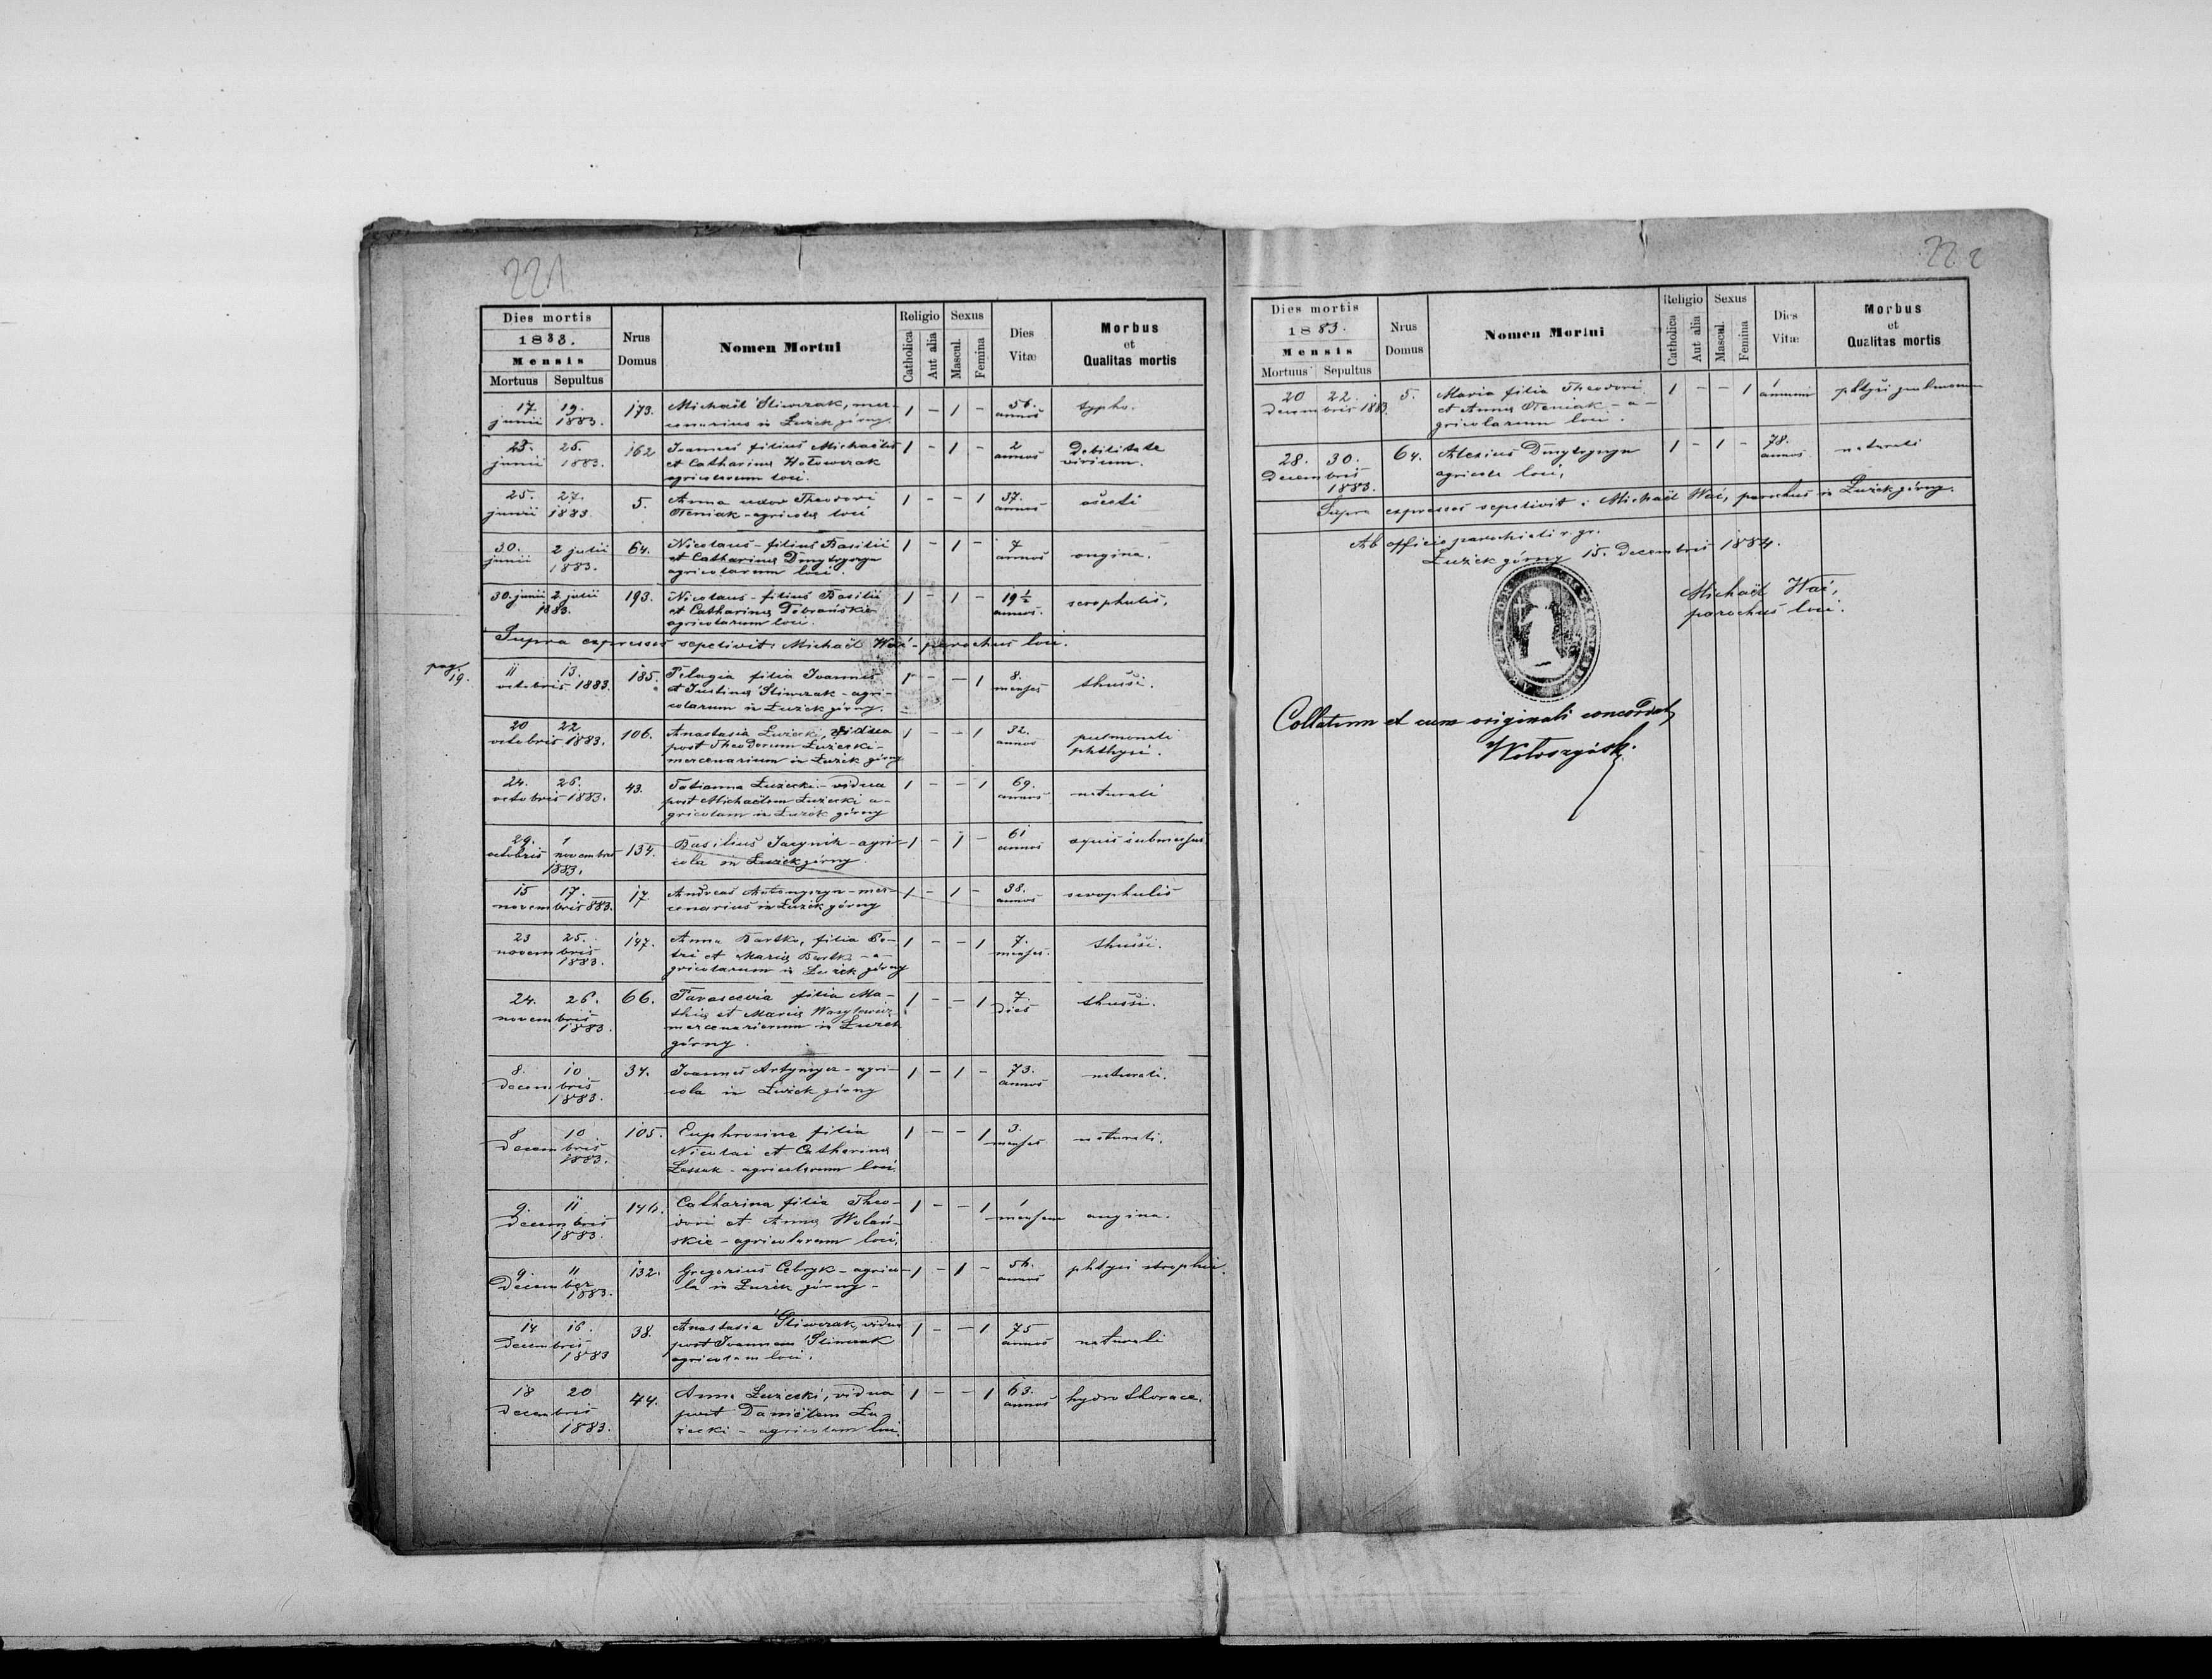 221
Dies mortis
1883.
Mensis
Mortuus Sepultus
Nrus Domus
Nomen Mortui
Religio
Catholica Aut alia
Sexus
Mascul. Femina
Dies Vitæ
Morbus et Qualitas mortis
17. junii 19. 1883. 173. Michaël Sliwczak, mer- 1 – 1 – 56. annos typho.
cenarius in Łużek górny
23. junii 25. 1883. 162 Joannes filius Michaëlis 1 – 1 – 2 annos Debilitate virium.
et Catharinæ Hołowczak
agricolarum loci.
25. junii 27. 1883. 5. Anna uxor Theodori 1 – – 1 37. annos
Oleniak - agricolæ loci
30. junii 2 julii 1883. 64. Nicolaus - filius Basilii 1 – 1 – 7 annos angina.
et Catharinæ Dmytryszyn
agricolarum loci.
30. junii 2. julii 1883. 193. Nicolaus - filius Basilii 1 – 1 – 19 ½ annos. scrophulis,
et Catharinæ Dobrańskie
agricolarum loci.
Supra expressos sepelivit: Michaël Wać - parochus loci.
pag. 19.
11 13. octobris 1883. 185. Pelagia filia Joannis 1 – – 1 8. menses thussi.
et Justinæ Sliwczak - agri-
colarum in Łużek górny.
20 22 octobris 1883. 106. Anastasia Łużecki, vidua 1 – – 1 32. annos pulmonali phthysi.
post Theodorum Łużecki -
mercenarium in Łużek górny
24. 26. octobris 1883. 43. Tatianna Łużecki - vidua 1 – – 1 69. annos naturali
post Michaëlem Łużecki a-
gricolam in Łużek górny
29. octobris 1 novembris 1883. 134. Basilius Jacynik - agri- 1 – 1 – 61 annos aquis submersus
cola in Łużek górny.
15 17. novembris 883. 17 Andreas Antonyszyn - mer- 1 – 1 – 38. annos scrophulis
cenarius in Łużek górny
23 25. novembris 1883. 147. Anna Bartko, filia Pe- 1 – – 1 7. menses. thussi.
tri et Mariæ Bartko - a-
gricolarum in Łużek górny
24. 26. novembris 1883. 66. Parascevia filia Ma- 1 – – 1 7. dies thussi.
thiæ et Mariæ Wasylewicz
mercenariorum in Łużek
górny.
8. 10 decembris 1883. 34. Joannes Artymycz - agri- 1 – 1 – 73. annos naturali.
cola in Łużek górny
8 10 decembris 1883. 105. Euphrosine filia 1 – – 1 3. menses naturali.
Nicolai et Catharinæ
Lessak - agricolarum loci.
9. 11 decembris 1883. 146. Catharina filia Theo- 1 – – 1 1 mensem angina.
dori et Annæ Wolań-
skie - agricolarum loci,
9. 11 December 1883. 132. Gregorius Cebryk - agrico- 1 – 1 – 56. annos phtysi
la in Łużek górny -
14 16. Decembris 1883 38. Anastasia Sliwczak, vidua 1 – – 1 75 annos naturali
post Joannem Sliwczak
agricolam loci.
18 20 Decembris 1883. 44. Anna Łużecki, vidua 1 – – 1 63. annos hydrothorace.
post Daniëlem Łu-
żecki - agricolam loci.
222
Dies mortis
1883.
Mensis
Mortuus Sepultus
Nrus Domus
Nomen Mortui
Religio
Catholica Aut alia
Sexus
Mascul. Femina
Dies Vitæ
Morbus et Qualitas mortis
20 22. Decembris 1883. 5. Maria filia Theodori 1 – – 1 1 annum phtysi
et Annæ Oleniak - a-
gricolarum loci.
28. 30. Decembris 1883. 64. Alexius Dmytryszyn 1 – 1 – 78. annos naturali
agricola loci,
Supra expressos sepelivit: Michaël Wać, parochus in Łużek górny.
Ab officio parochiali r. gr.
Łużek górny 15. Decembris 1884.
Michaël Wać,
parochus loci.
Collatum et cum originali concordat
Wołoszyński